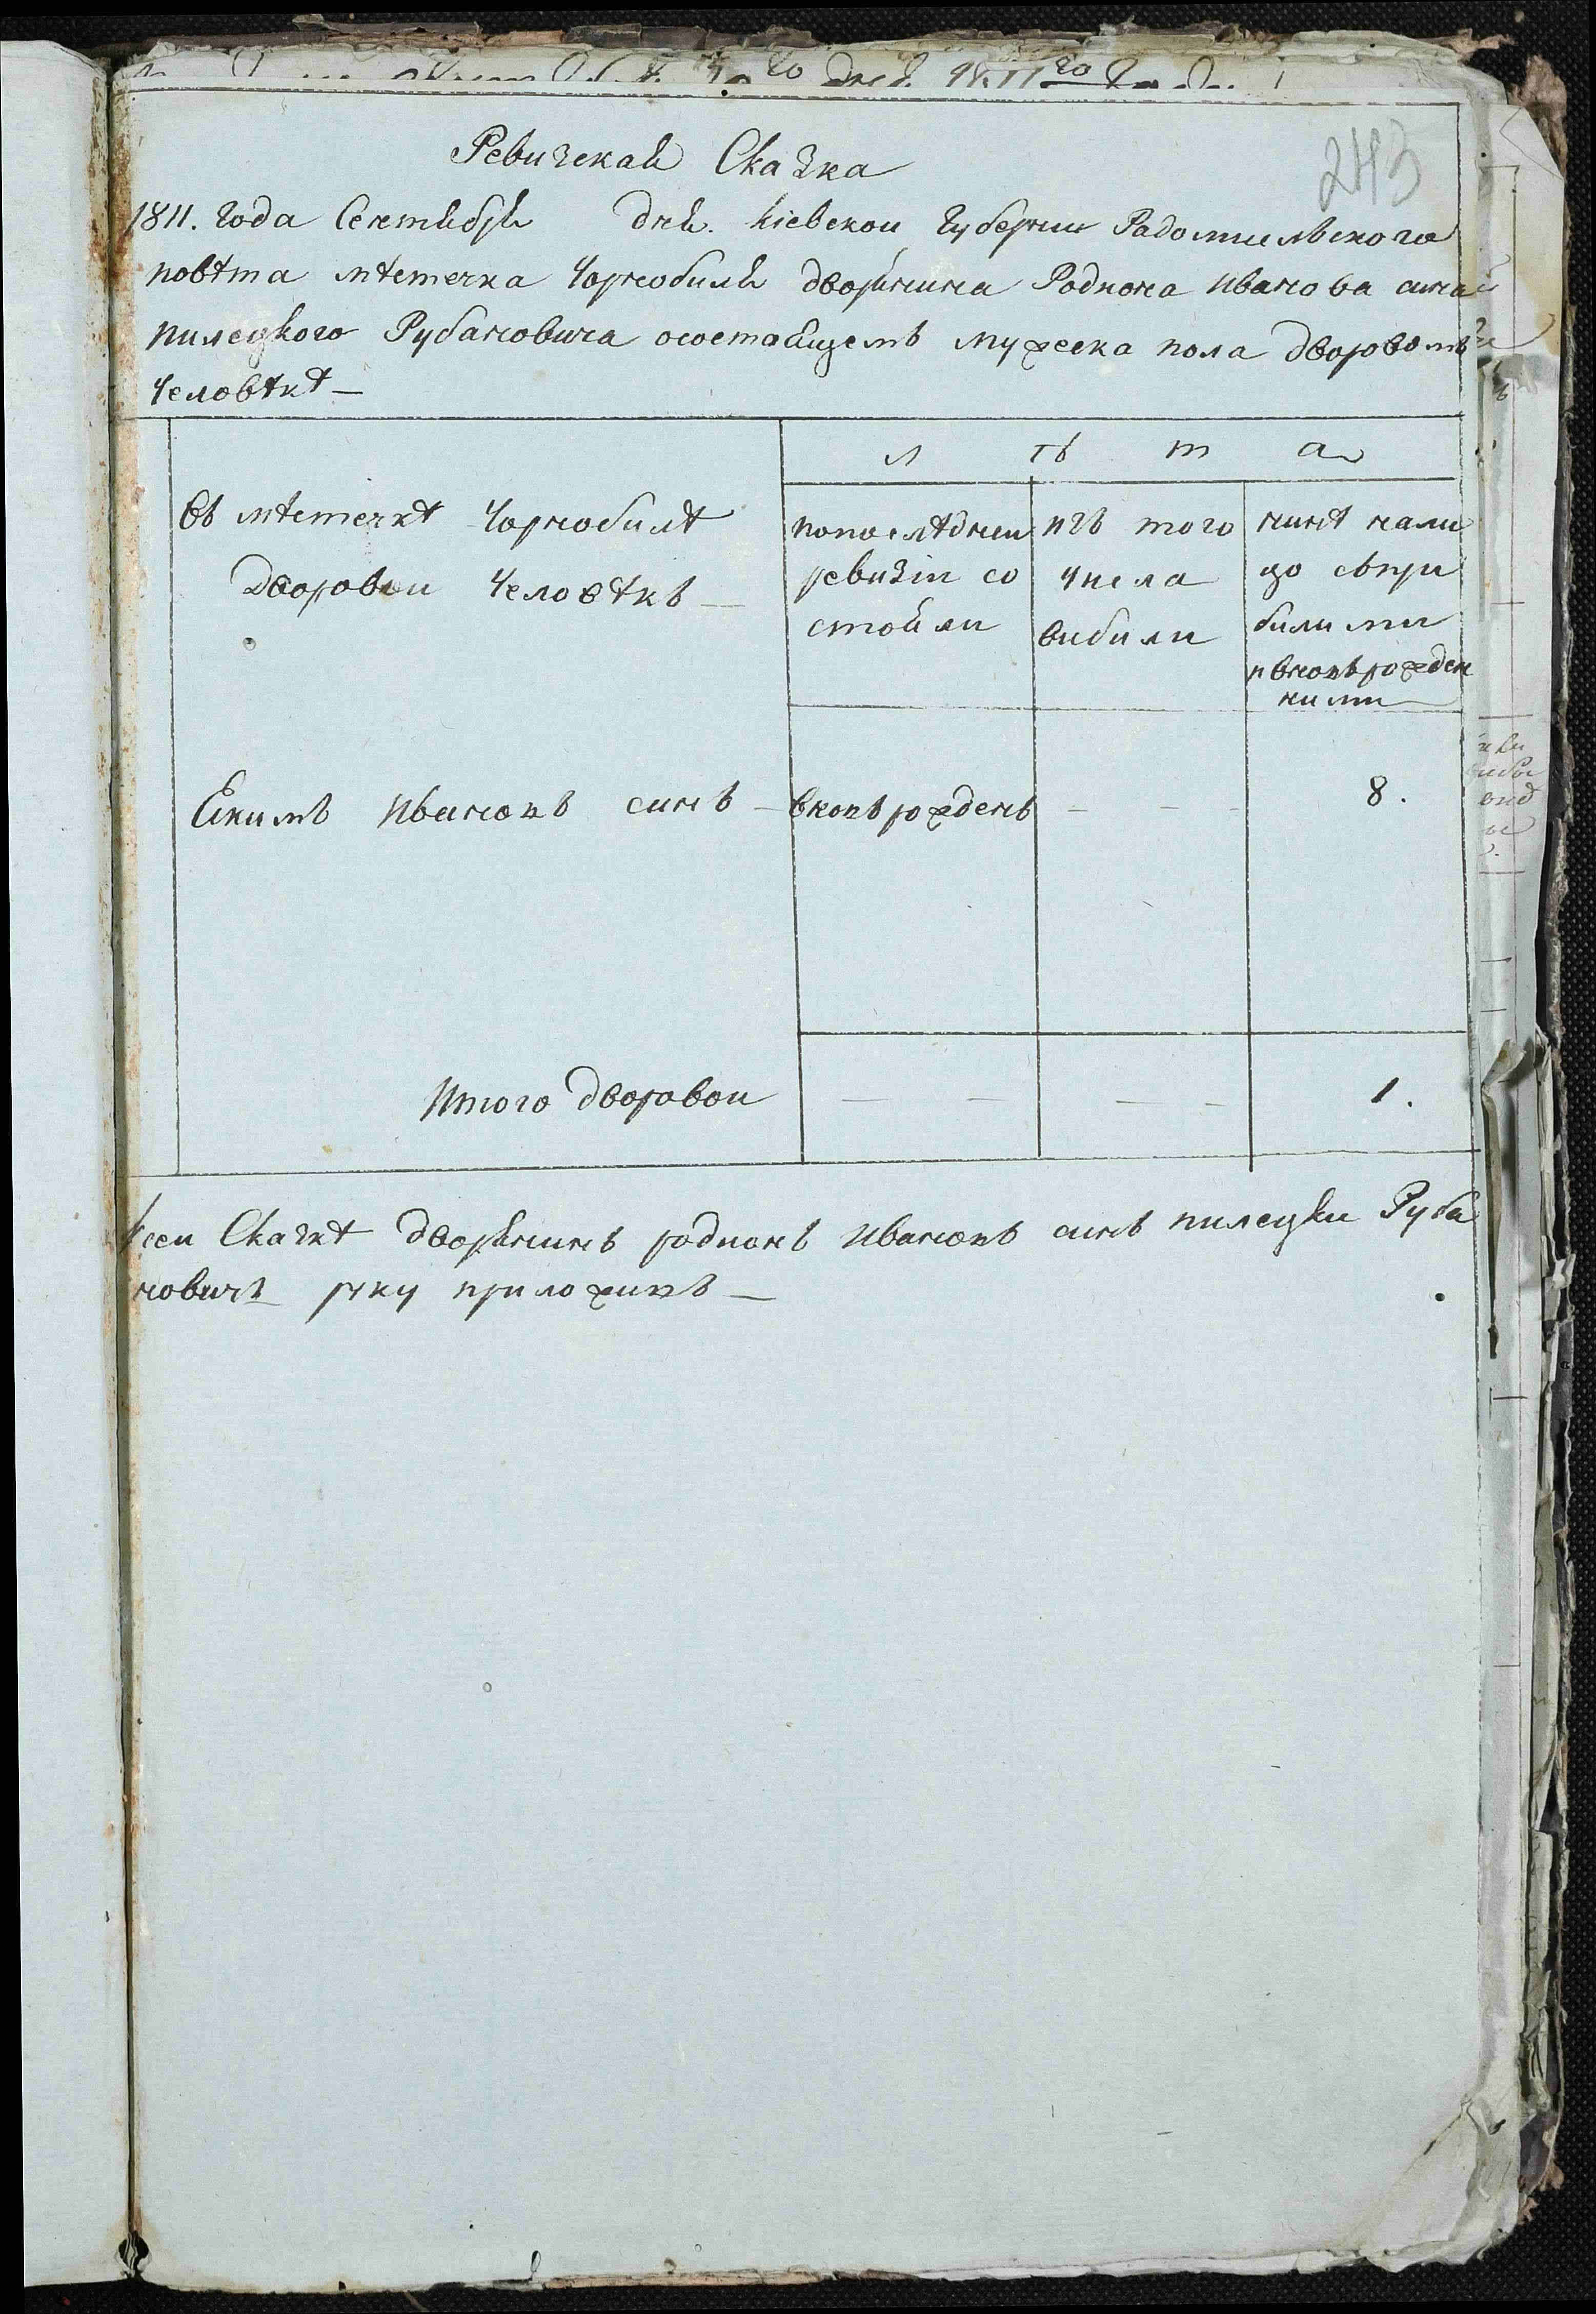 243
Ревизская Сказка
1811. Года Сентября дня. Кіевской Губернии Радомисльского
повѣта мѣстечка Чорнобиля дворянина Родиона Иванова сина
Пилецкого Рубановича осостаящемъ мужеска пола дворовомъ
Человѣкѣ —
Въ мѣстечкѣ Чорнобилѣ
Дворовои Человѣкъ —
л ѣ т а
попослѣднеи
ревизіи со
стояли
изъ того
числа
вибили
нинѣ нали
цо съпри
билими
и вновърожден
ними
Екимъ Ивановъ синъ — вновърожденъ — — — 8.
Итого дворовои — — — — 1.
Ксеи Сказкѣ дворянинъ родионъ Ивановъ синъ пилецки Руба
новичъ руку приложивъ —